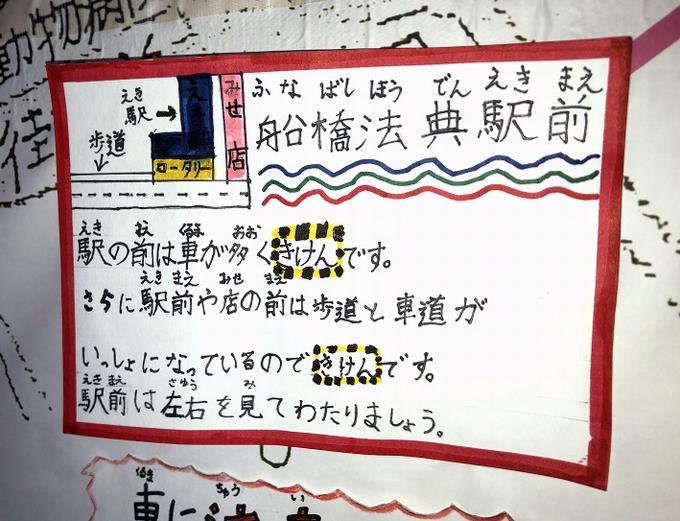 動物病
住
えき
駅→
歩道
えき
ロータリー
みせ
店
ふなばしほうでんえきまえ
船橋法典駅前
えき まえ くるま おお
駅の前は車が多くきけんです。
えき まえ みせ まえ
さらに駅前や店の前は歩道と車道が
いっしょになっているのできけんです。
えき まえ さゆう み
駅前は左右を見てわたりましょう。
くるま ちゅう い
車に注意